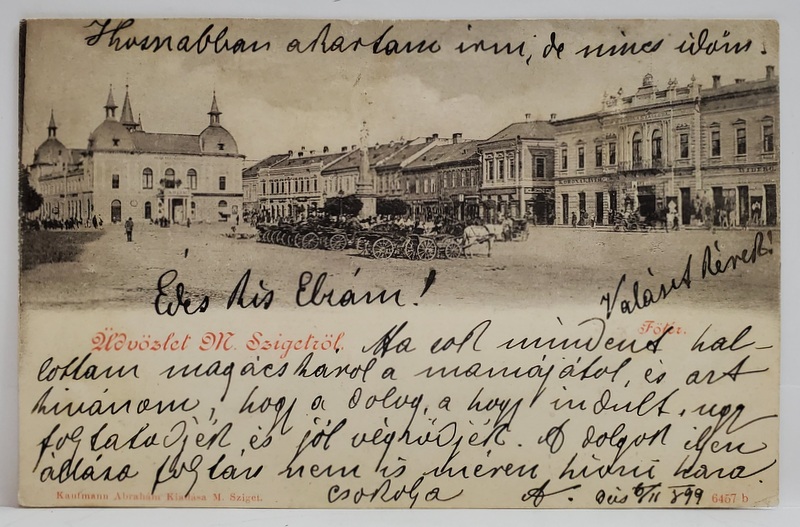 Hosszabban akartam irni, de nincs időm.
Édes kis
Választ kérek!
Üdvözlet M. Szigetről.
Főtér.
Ma sok mindent hal-
lottam magácskáról a mamájától, és azt
kivánom, hogy a dolog, a hogy indult, ugy
folytatódjék és jól végződjék. A dolgok ilyen
állása folytán nem is merem hivni haza.
csokolja A.
Kaufmann Abrahám Kiadása M. Sziget.
6457 b